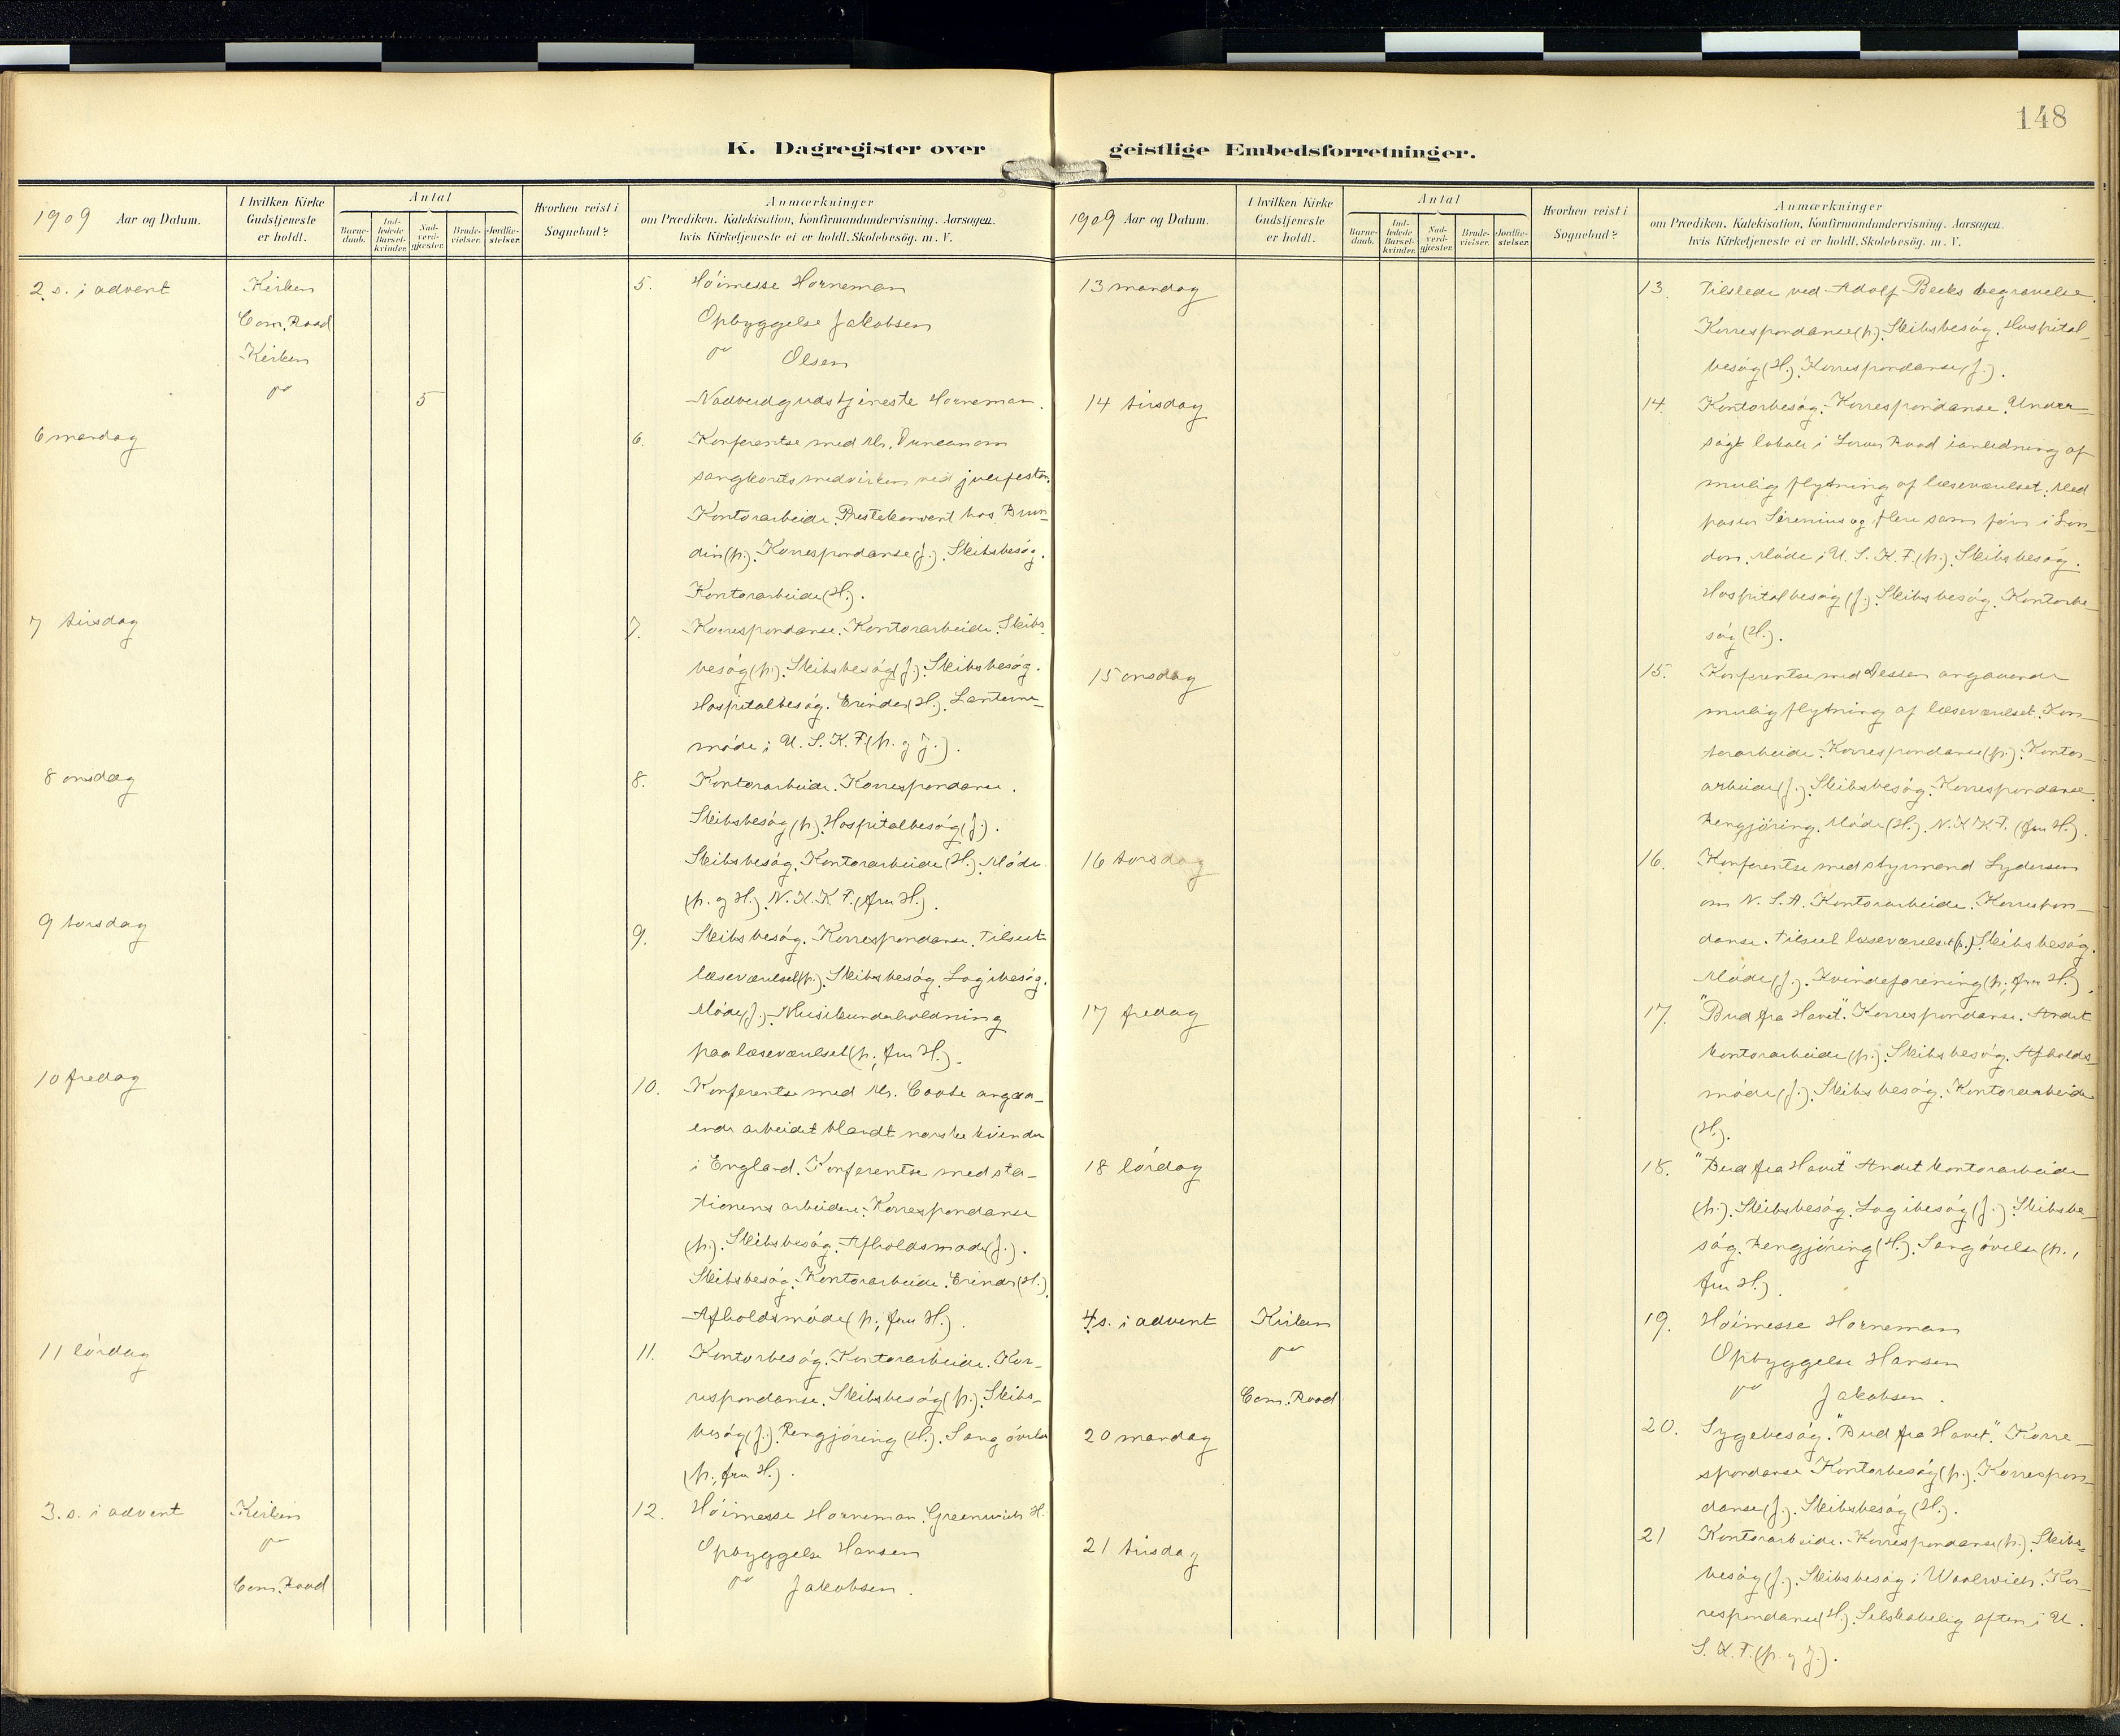 148
K. Dagregister over
geistlige Embedsforretninger.
1909 Aar og Datum.
I hvilken Kirke Gudstjeneste er holdt.
Antal
Barne-daab.
Ind-ledede Barsel-kvinder.
Nad-verd-gjester.
Brude-vielser.
Jordfæ-stelser.
Hvorhen reist i Sognebud?
Anmærkninger
om Prædiken, Katekisation, Konfirmandundervisning. Aarsagen.
hvis Kirketjeneste ei er holdt. Skolebesög. m. V.
2. s. i advent Kirken 5. Höimesse Horneman
Com. Road Opbyggelse Jakobsen
Kirken do Olsen
do 5 Nadverdgudstjeneste Horneman.
6 mandag 6. Konferentse med Mr. Duncan om
sangkorets medvirken ved julefesten.
Kontorarbeide. Prestekonvent hos Brun-
din (p.). Korrespondanse (J.). Skibsbesög.
Kontorarbeide (H.).
7 tirsdag 7. Korrespondanse. Kontorarbeide. Skibs-
besög (p.). Skibsbesög (J.). Skibsbesög.
Hospitalbesög. Erinder (H.). Lanterne-
möde i U. S. K. F. (p. og J.).
8 onsdag 8. Kontorarbeide. Korrespondanse.
Skibsbesög (p.). Hospitalbesög (J.).
Skibsbesög. Kontorarbeide (H.). Möde
(p. og H.). N. K. K. F. (fru H.).
9 torsdag 9. Skibsbesög. Korrespondanse. Tilseet
læseværelset (p.). Skibsbesög. Logibesög.
Möde (J.). Musikunderholdning
paa læseværelset (p., fru H.).
10 fredag 10. Konferentse med Mr. Coote angaa-
ende arbeidet blandt norske kvinder
i England. Konferentse med sta-
tionens arbeidere. Korrespondanse
(p.). Skibsbesög. Afholdsmöde (J.).
Skibsbesög. Kontorarbeide. Erinder (H.).
Afholdsmöde (p., fru H.).
11 lördag 11. Kontorbesög. Kontorarbeide. Kor-
respondanse. Skibsbesög (p.). Skibs-
besög (J.). Rengjöring (H.). Sangövelse
(p., fru H.).
3. s. i advent Kirken 12. Höimesse Horneman. Greenwich H.
do Opbyggelse Hansen
Com. Road do Jakobsen.
1909 Aar og Datum.
I hvilken Kirke Gudstjeneste er holdt.
Antal
Barne-daab.
Ind-ledede Barsel-kvinder.
Nad-verd-gjester.
Brude-vielser.
Jordfæ-stelser.
Hvorhen reist i Sognebud?
Anmærkninger
om Prædiken, Katekisation, Konfirmandundervisning. Aarsagen.
hvis Kirketjeneste ei er holdt. Skolebesög. m. V.
13 mandag 13. Tilstede ved Adolf Becks begravelse.
Korrespondanse (p.). Skibsbesög. Hospital-
besög (H.). Korrespondanse (J.).
14 tirsdag 14. Kontorbesög. Korrespondanse. Under-
sögt lokale i Lower Road i anledning af
mulig flytning af læseværelset. Med
pastor Sirenius og flere som förer i Lon-
don. Möde i U. S. K. F. (p.). Skibsbesög.
Hospitalbesög (J.). Skibsbesög. Kontorbe-
sög (H.).
15 onsdag 15. Konferentse med Dessen angaaende
mulig flytning af læseværelset. Kon-
torarbeide. Korrespondanse (p.). Kontor-
arbeide (J.). Skibsbesög. Korrespondanse.
Rengjöring. Möde (H.). N. K. K. F. (fru H.).
16 torsdag 16. Konferentse med styrmand Lydersen
om N. S. A. Kontorarbeide. Korrespon-
danse. Tilseet læseværelset (p.). Skibsbesög.
Möde (J.). Kvindeforening (p., fru H.).
17 fredag 17. "Bud fra Havet". Korrespondanse. Andet
kontorarbeide (p.). Skibsbesög. Afholds-
möde (J.). Skibsbesög. Kontorarbeide
(H.).
18 lördag 18. "Bud fra Havet" Andet kontorarbeide
(p.). Skibsbesög. Logibesög (J.). Skibsbe-
sög. Rengjöring (H.). Sangövelse (p.,
fru H.).
4. s. i advent Kirken 19. Höimesse Horneman
do Opbyggelse Hansen
Com. Road do Jakobsen.
20 mandag 20. Sygebesög. "Bud fra Havet". Korre-
spondanse Kontorbesög (p.). Korrespon-
danse (J.). Skibsbesög (H.).
21 tirsdag 21 Kontorarbeide. Korrespondanse (p.). Skibs-
besög (J.). Skibsbesög i Woolwich. Kor-
respondanse (H.). Selskabelig aften i U.
S. K. F. (p. og J.).